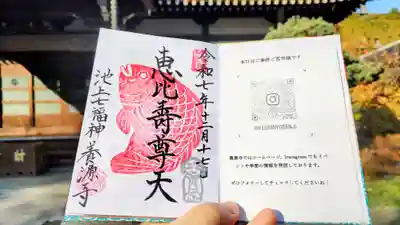 令和七年十二月十七日
恵比壽尊天
池上七福神
養源寺
本日はご参拝ご苦労様です
養源寺ではホームページ、Instagramでもイベ
ントや季節の情報を発信しております。
ぜひフォローしてチェックしてくださいね!